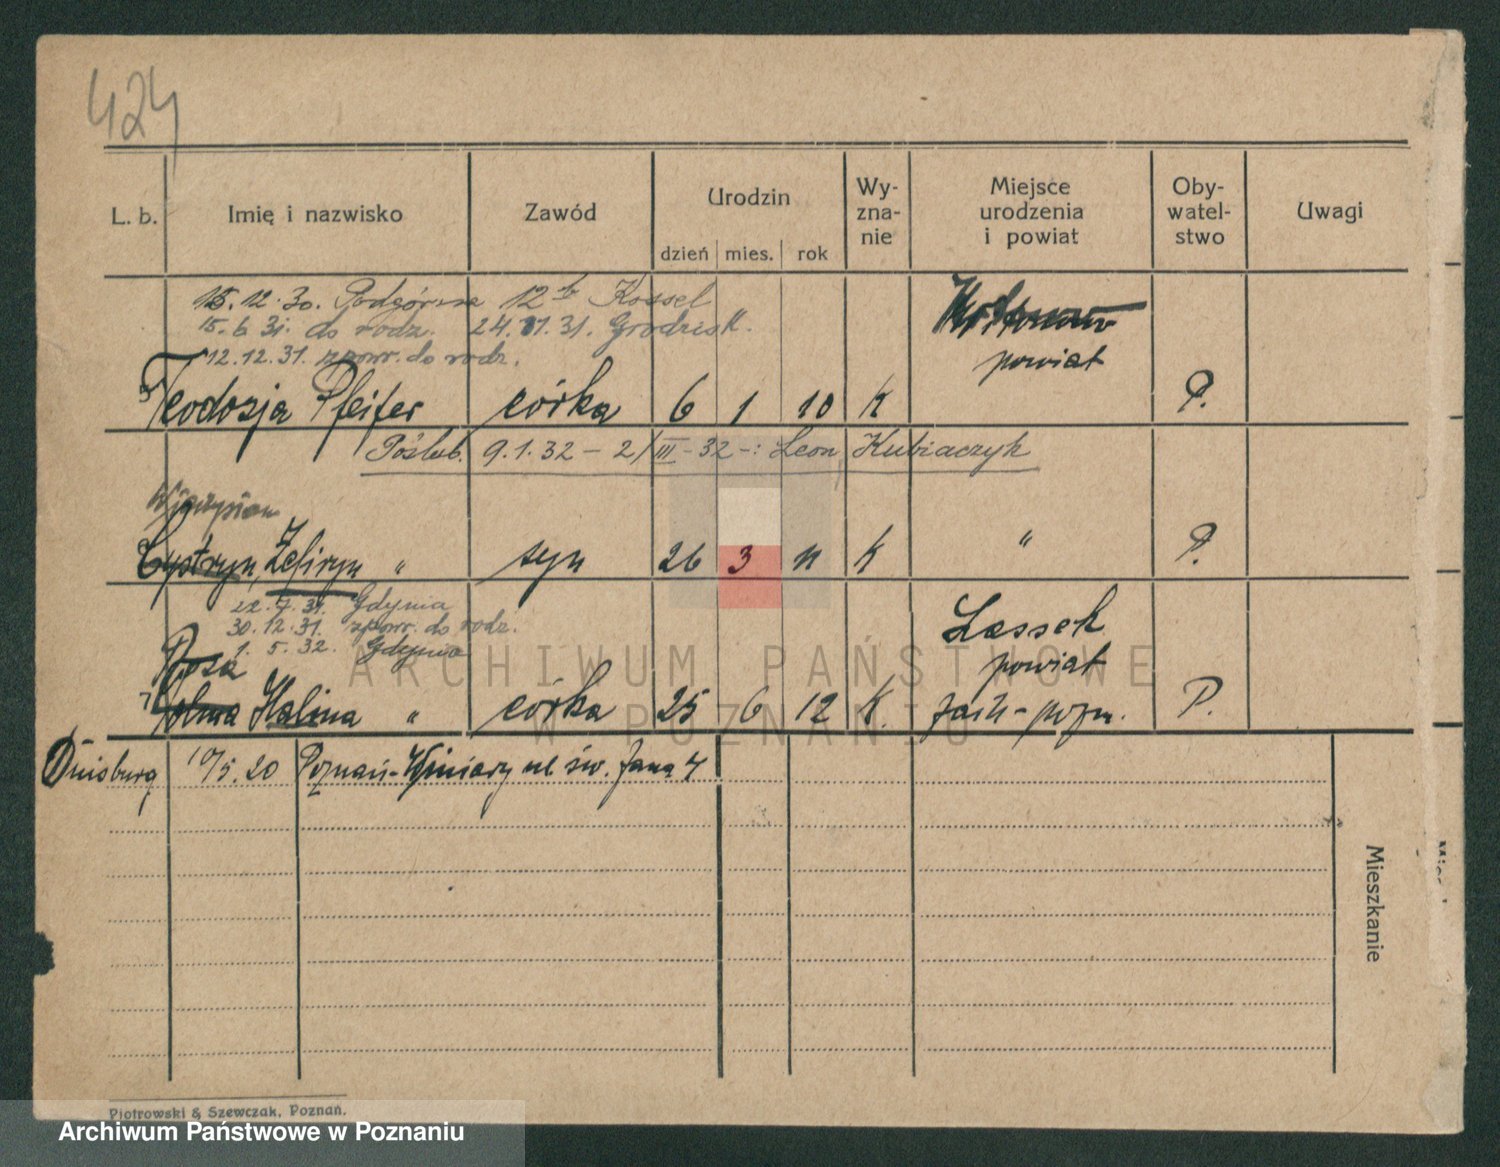 424
L. b. Imię i nazwisko Zawód Urodzin Wy-zna-nie Miejsce urodzenia i powiat Oby-watel-stwo Uwagi
dzień mies. rok
15.12.30. Podgórna 12b Kossel
15.6.31. do rodz. 24.01.31. Grodzisk.
12.12.31. zpowr. do rodz.
powiat
Teodozja Pfeifer córka 6 1 10 K P.
Poślub. 9.1.32 – 2/III-32 –: Leon Kubiaczyk
Zefiryn " syn 26 3 11 K " P.
22.7.31. Gdynia
30.12.31. zpowr. do rodz.
1. 5. 32. Gdynia
Lassek
powiat
Rosa
7 Halina " córka 25 6 12 K. zach-pozn. P.
Duisburg 10/5.20 Poznań-Winiary ul. św. Jana 4
Mieszkanie
Piotrowski & Szewczak, Poznań.
ARCHIWUM PAŃSTWOWE
W POZNANIU
Archiwum Państwowe w Poznaniu